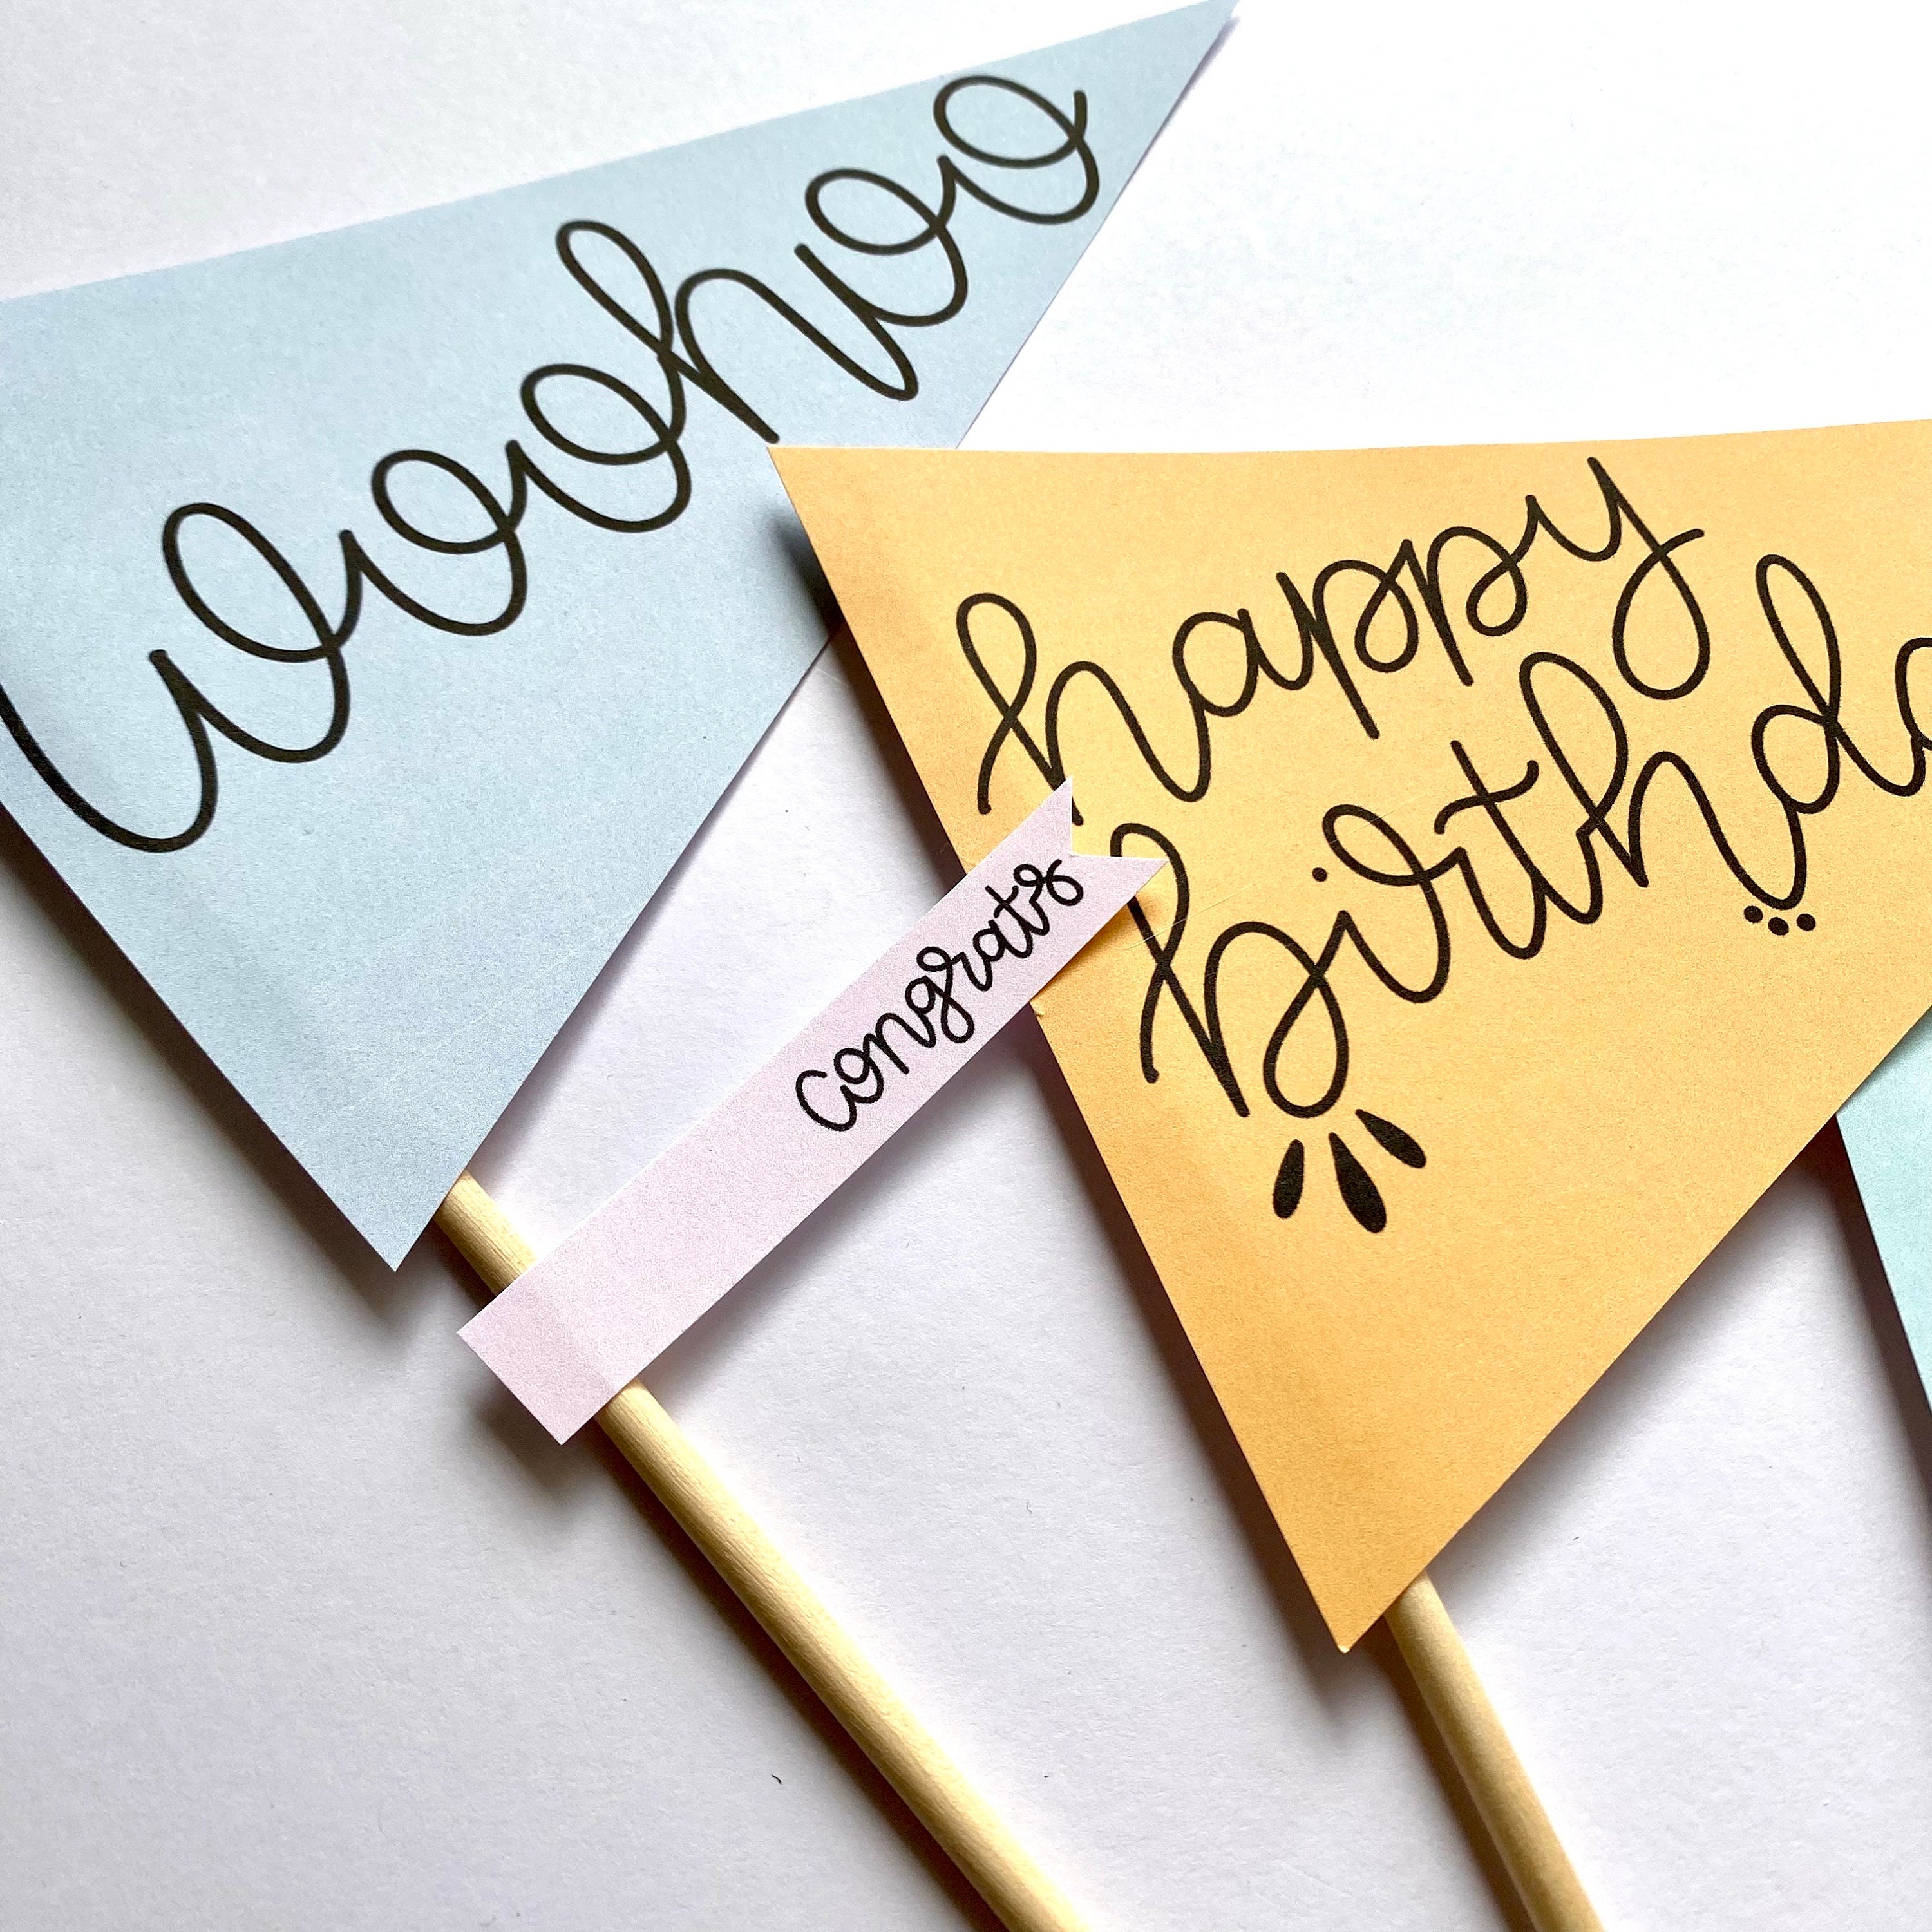 woohoo
happy
birthda
congrats